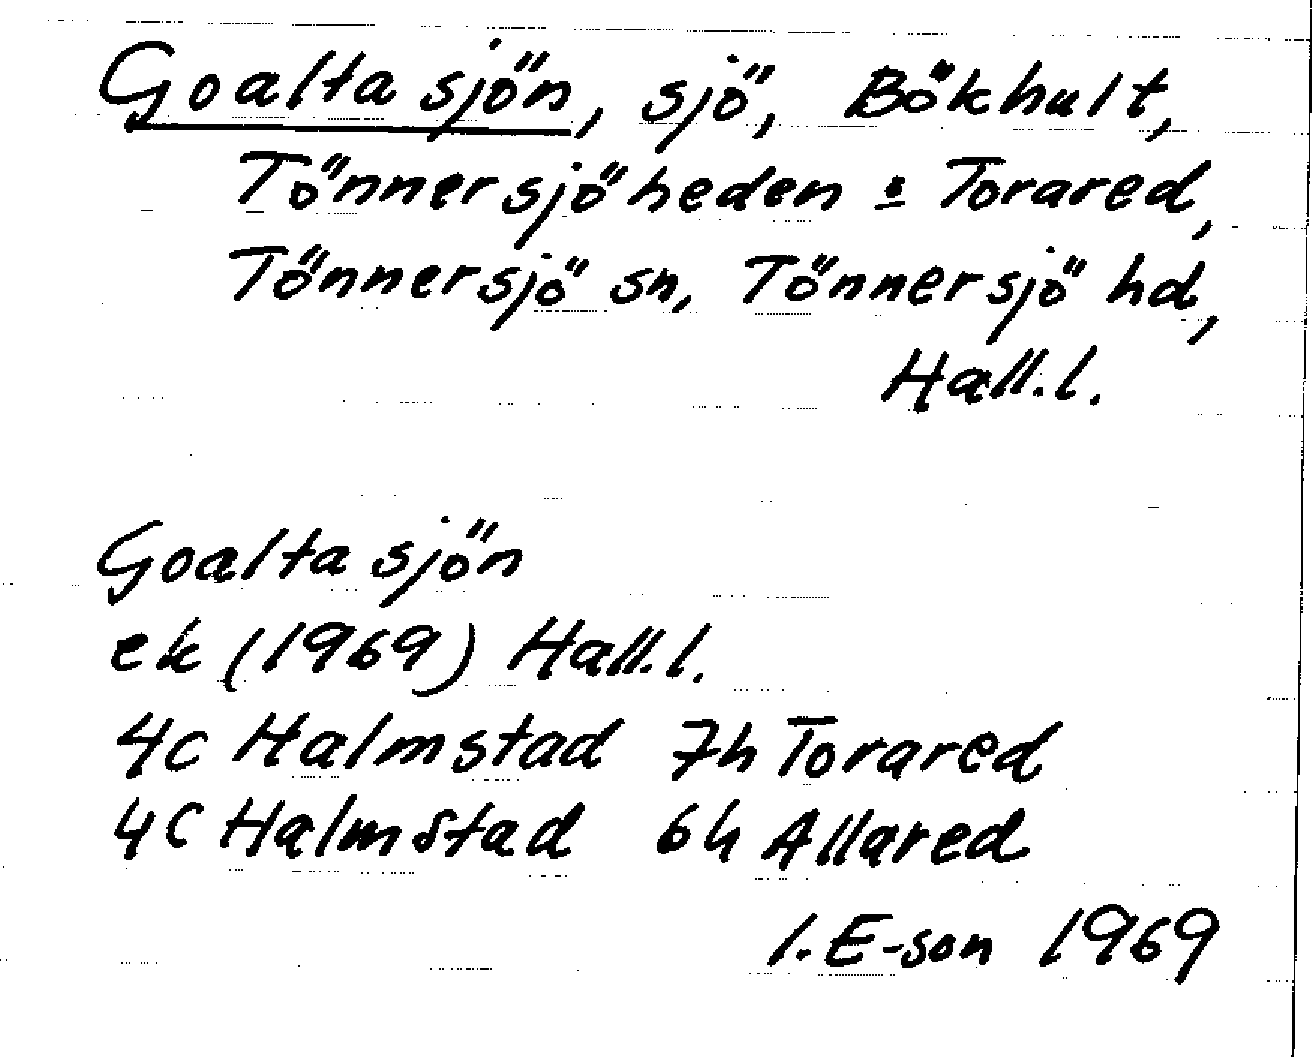 Goalta sjön, sjö, Bökhult,
Tönnersjöheden o Torared,
Tönnersjö sn, Tönnersjö hd,
Hall.l.
Goalta sjön
ek (1969) Hall.l.
4c Halmstad 7h Torared
4c Halmstad 6h Allared
I. E-son 1969